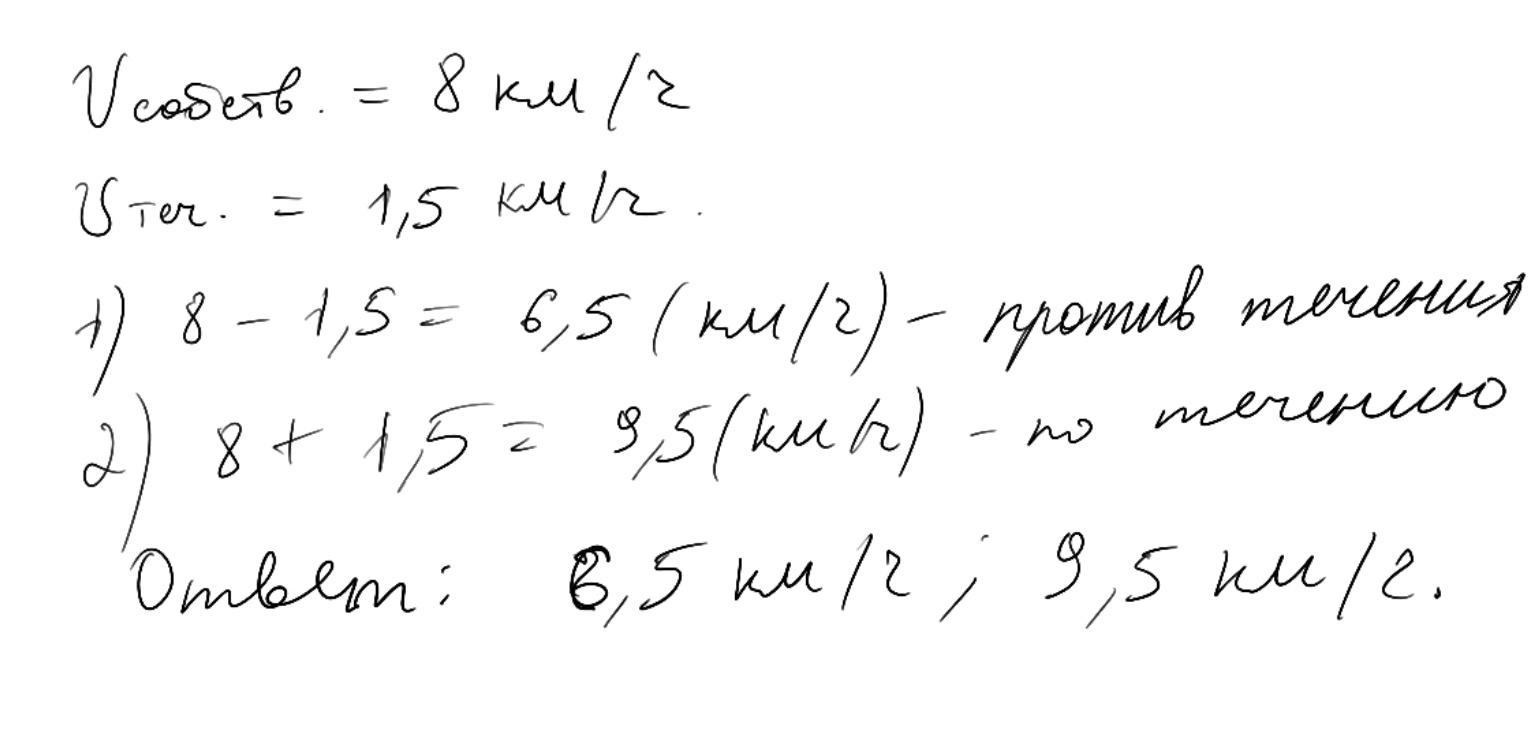 Vсобств. = 8 км/ч
Vтеч. = 1,5 км/ч.
1) 8 - 1,5 = 6,5 (км/ч) - против течения
2) 8 + 1,5 = 9,5 (км/ч) - по течению
Ответ: 6,5 км/ч ; 9,5 км/ч.